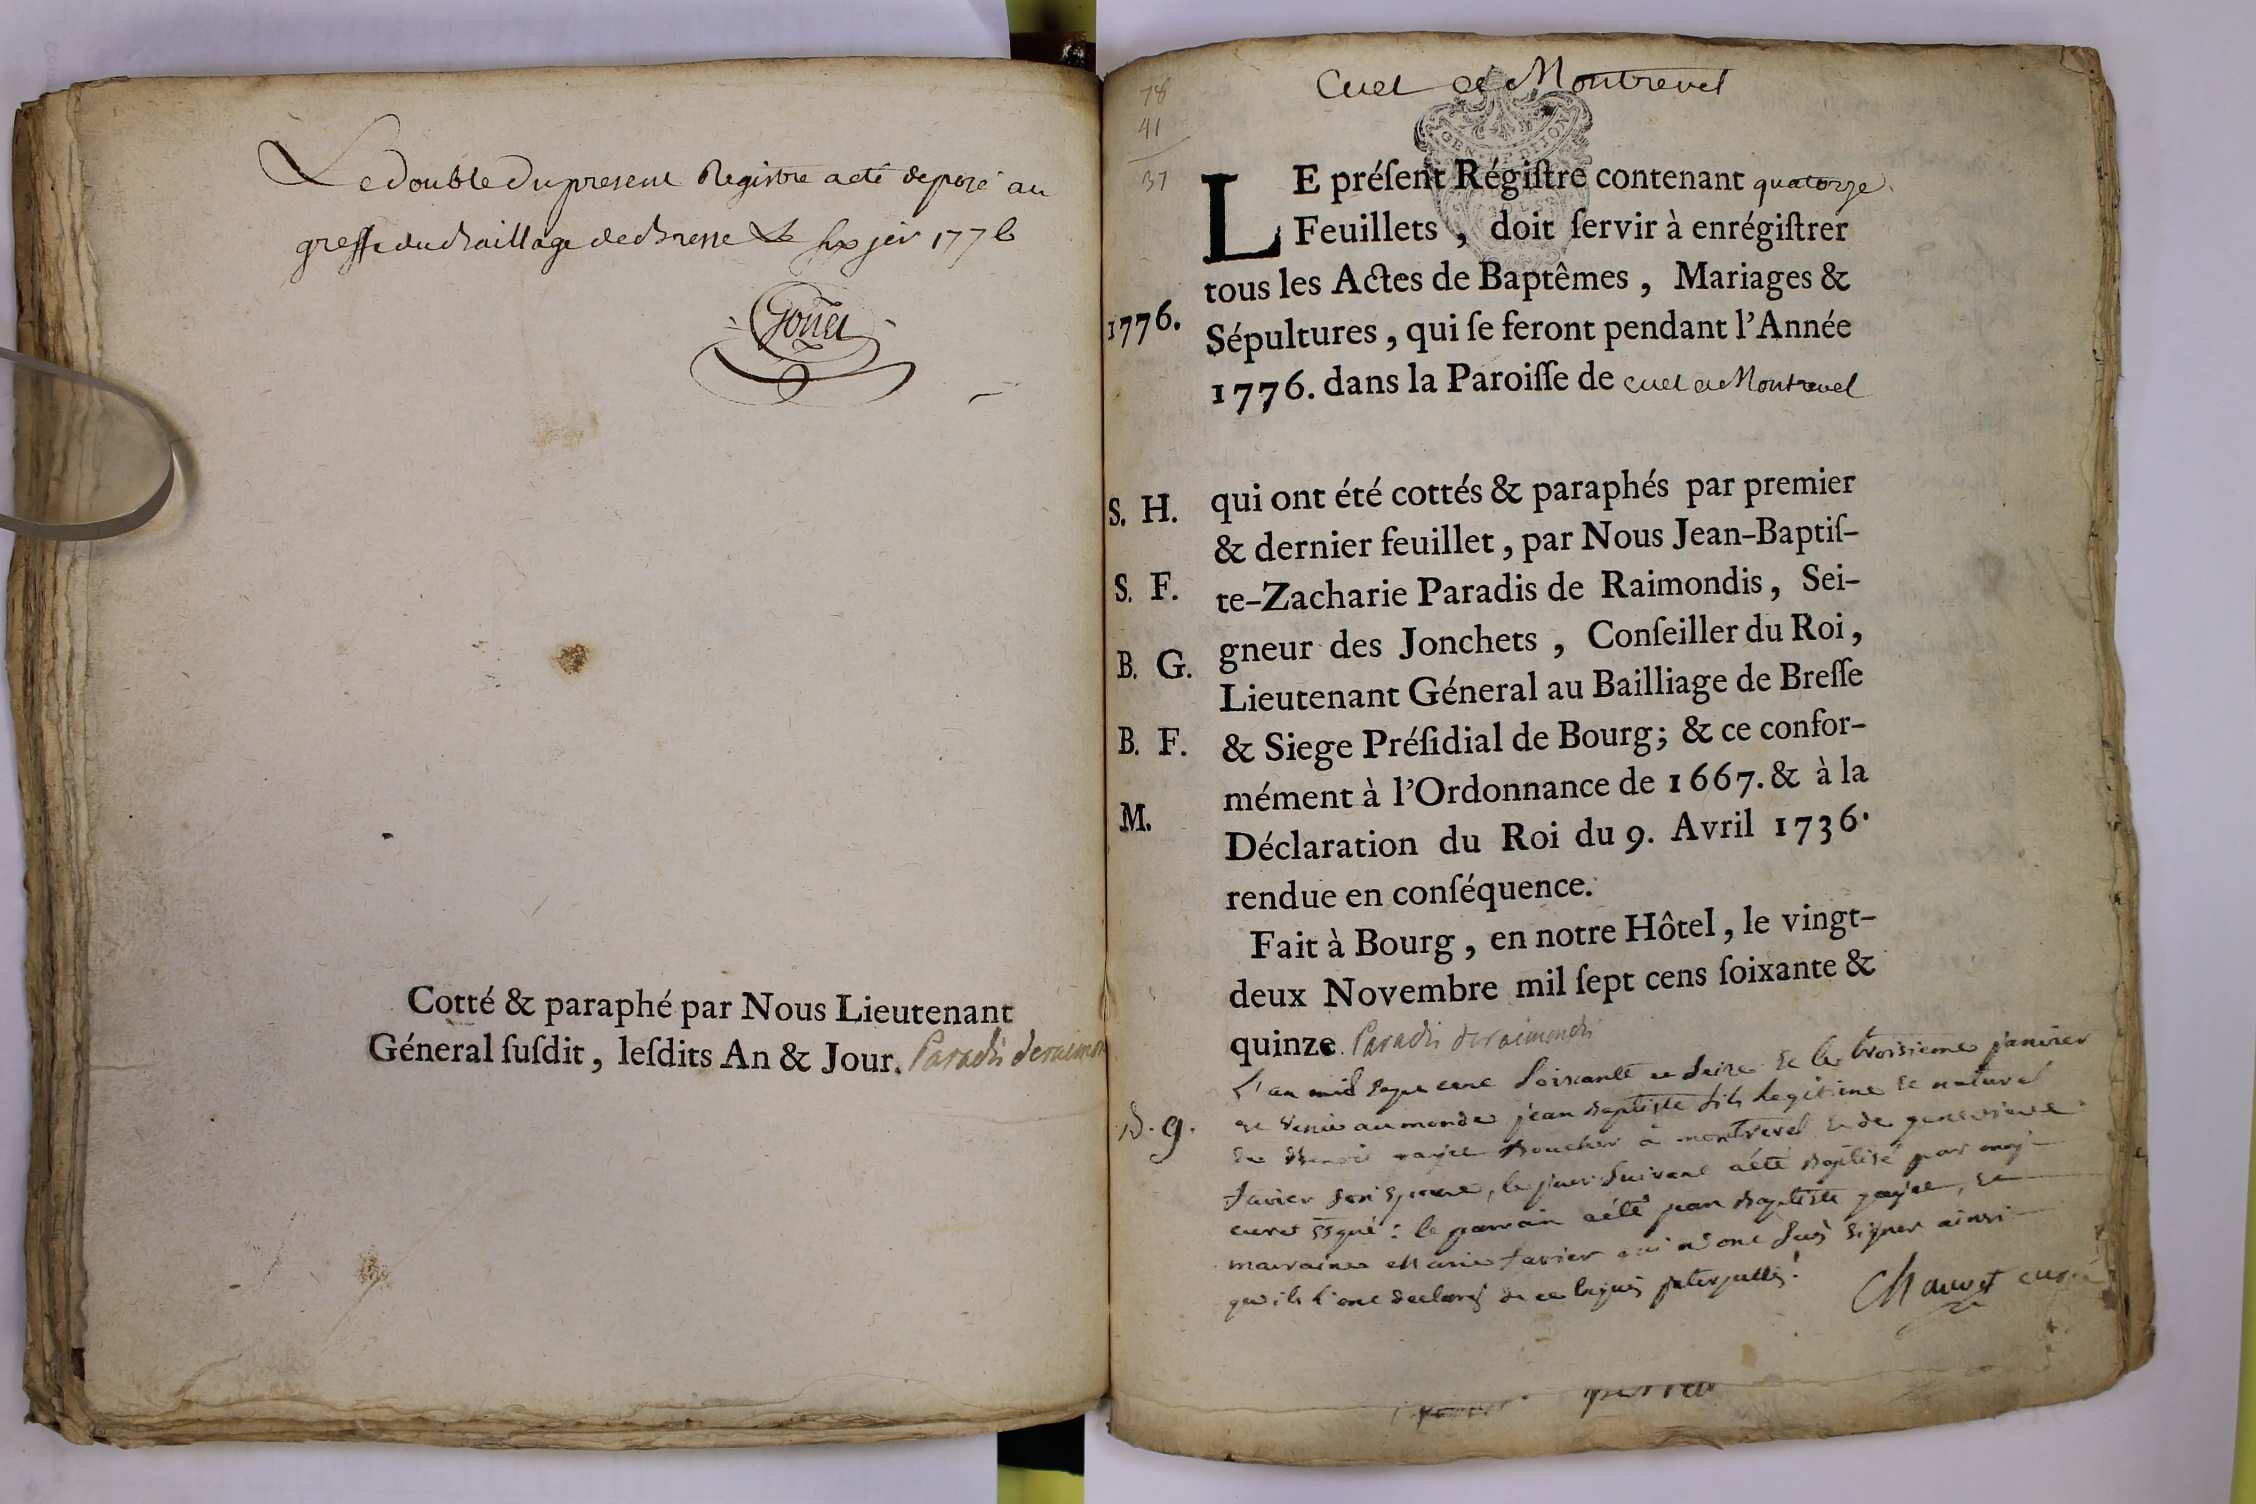 Le double du present Registre a eté deposé au
greffe du Baillage de Bresse le six jer 1776
Cotté & paraphé par Nous Lieutenant
Géneral ſuſdit, leſdits An & Jour. Paradis deraimon
Cuet et Montrevel
78
41
37
LE préſent Régiſtre contenant quatorze
Feuillets, doit ſervir à enrégiſtrer
tous les Actes de Baptêmes, Mariages &
1776. Sépultures, qui ſe feront pendant l'Année
1776. dans la Paroiſſe de cuet et Montrevel
S. H. qui ont été cottés & paraphés par premier
& dernier feuillet, par Nous Jean-Baptiſ-
S. F. te-Zacharie Paradis de Raimondis, Sei-
gneur des Jonchets, Conſeiller du Roi,
B. G. Lieutenant Géneral au Bailliage de Breſſe
B. F. & Siege Préſidial de Bourg; & ce confor-
mément à l'Ordonnance de 1667. & à la
M. Déclaration du Roi du 9. Avril 1736.
rendue en conſéquence.
Fait à Bourg, en notre Hôtel, le vingt-
deux Novembre mil ſept cens ſoixante &
quinze. Paradis deraimondis
L'an mil sept cent soixante et seize et le troisieme janvier
B. g. est venu au monde jean Baptiste fils legitime et naturel
de Benoit Boucher à montrevel et de genevieve
favier son epouse, le jour suivant a été Baptisé par moy
curé ssgné: le parrain a été jean Baptiste et
marraine Marie favier qui n'ont sus signer ainsi
qu'ils l'ont declaré de ce requis
Chauvet curé